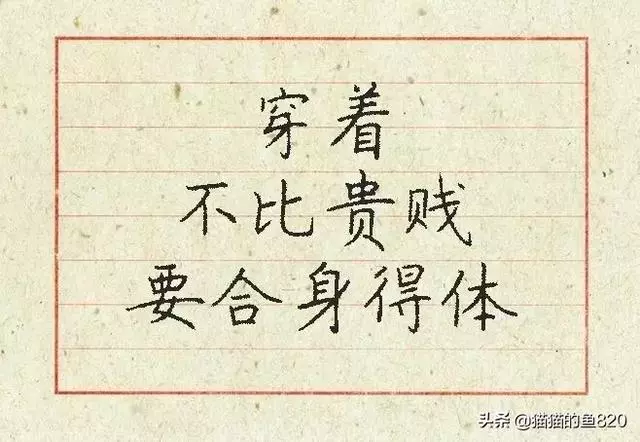 穿着
不比贵贱
要合身得体
头条 @猫猫的鱼820